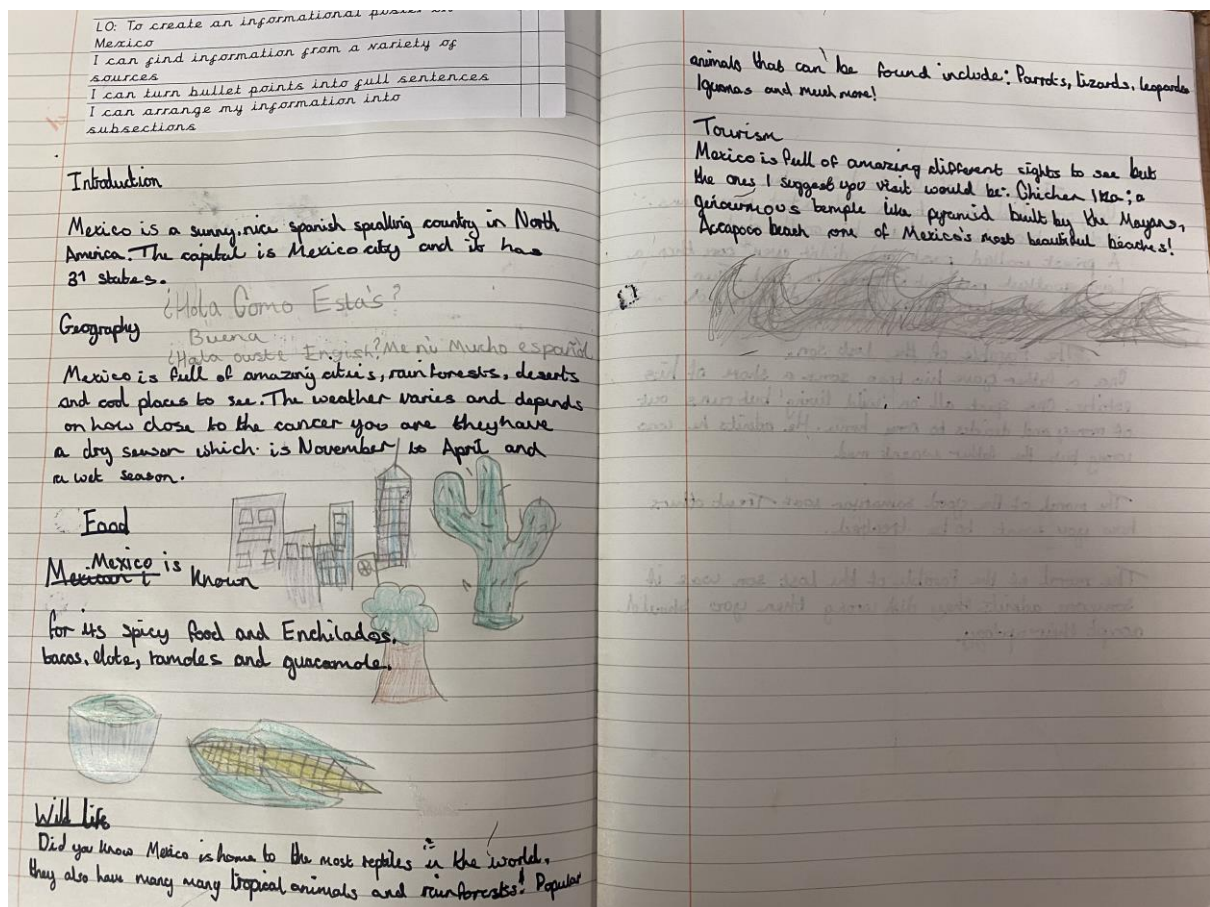 LO: To create an informational poster on
Mexico
I can find information from a variety of
sources
I can turn bullet points into full sentences
I can arrange my information into
subsections
Introduction
Mexico is a sunny, nice spanish spealling country in North
America. The capital is Mexico city and it has
31 states.
¿Hola Como Esta's?
Geography
Buena
¿Hala ouste Engish? Me nú Mucho español
Mexico is full of amazing citis, rainforests, deserts
and cool places to see. The weather varies and depends
on how close to the cancer you are they have
a dry season which is November to April and
a wet season.
Food
Mexican i Mexico is known
for its spicy food and Enchilados,
tacos, elote, tamoles and guacamole.
Wild life
Did you know Mexico is home to the most reptiles in the world,
they also have many many tropical animals and rainforests! Popular
animals that can be found include: Parrots, Lizards, leopardes
Iguanas and much more!
Tourism
Mexico is full of amazing different sights to see but
the ones I suggest you visit would be: Chichen Itza; a
temple like pyramid built by the Mayans,
Accapoco beach one of Mexico's most beautiful beaches!